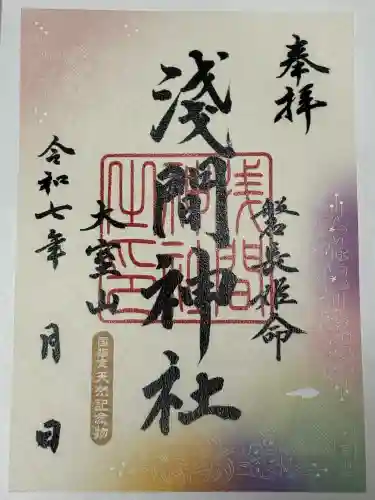 奉拝
磐長姫命
淺間神社
浅間神社之印
大室山
国指定天然記念物
令和七年 月 日